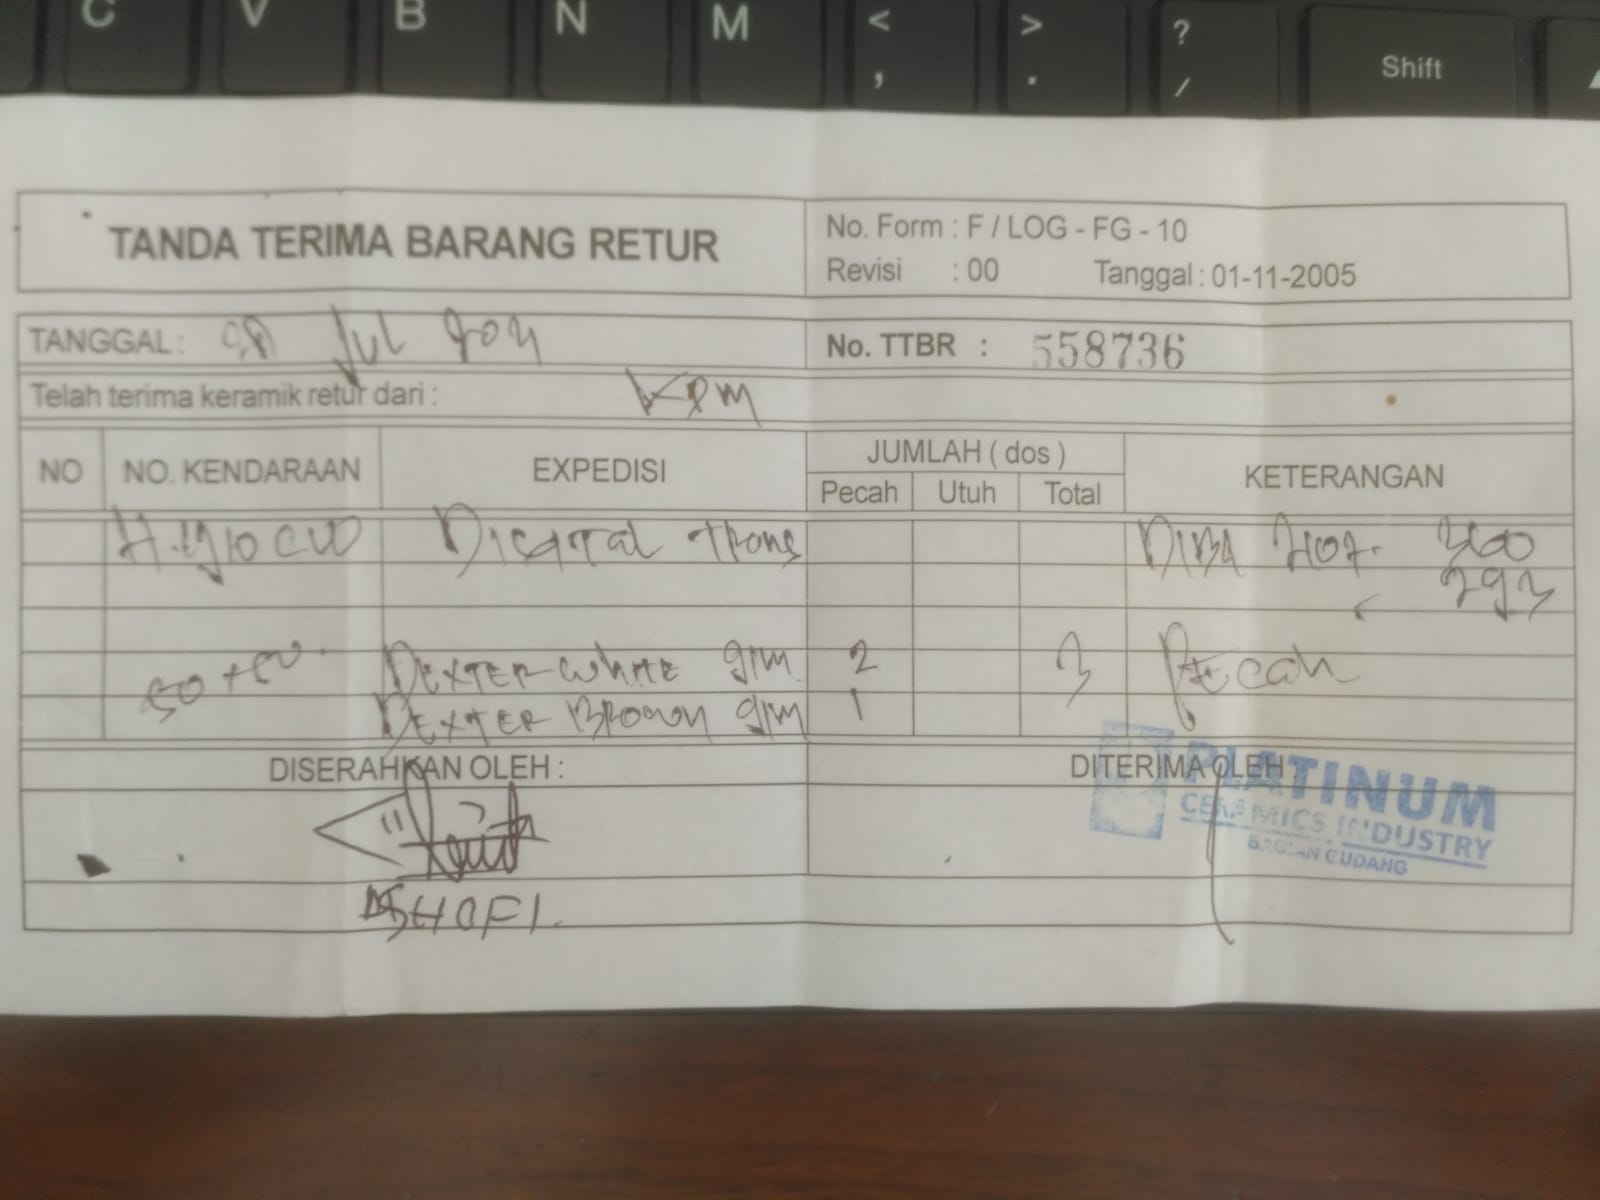 C V B N M < , > . ? / Shift
TANDA TERIMA BARANG RETUR
No. Form : F / LOG - FG - 10
Revisi : 00 Tanggal : 01-11-2005
TANGGAL : Jul
No. TTBR : 558736
Telah terima keramik retur dari : KPM
NO NO. KENDARAAN EXPEDISI JUMLAH ( dos ) KETERANGAN
Pecah Utuh Total
Digital Trans
DEXTER WHITE 2 3 Pecah
DEXTER BROWN 1
DISERAHKAN OLEH : DITERIMA OLEH :
PLATINUM
CERAMICS INDUSTRY
BAGIAN GUDANG
SHOFI.